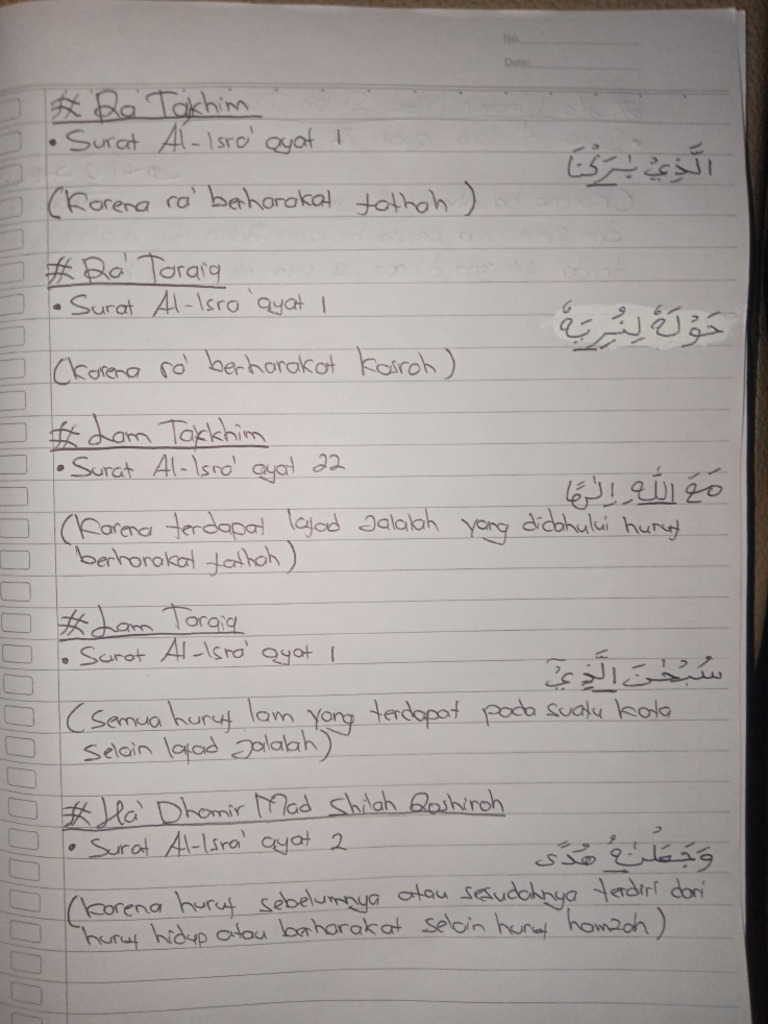 No.
Date:
# Ra Takhim
• Surat Al-Isro' ayat 1
الَّذِيْ بٰرَكْنَا
(Karena ra' berharakat fathah)
# Ra' Taraiq
• Surat Al-Isro' ayat 1
حَوْلَهٗ لِنُرِيَهٗ
(Karena ra' berharakat kasroh)
# Lam Takkhim
• Surat Al-Isra' ayat 22
مَعَ اللّٰهِ اِلٰهًا
(Karena terdapat lafad Jalalah yang didahului huruf
berharakat fathah)
# Lam Taraiq
• Surat Al-Isra' ayat 1
سُبْحٰنَ الَّذِيْ
(Semua huruf lam yang terdapat pada suatu kata
selain lafad Jalalah)
# Ha' Dhomir Mad Shilah Qashiroh
• Surat Al-Isra' ayat 2
وَجَعَلْنٰهُ هُدًى
(Karena huruf sebelumnya atau sesudahnya terdiri dari
huruf hidup atau berharakat selain huruf hamzah)